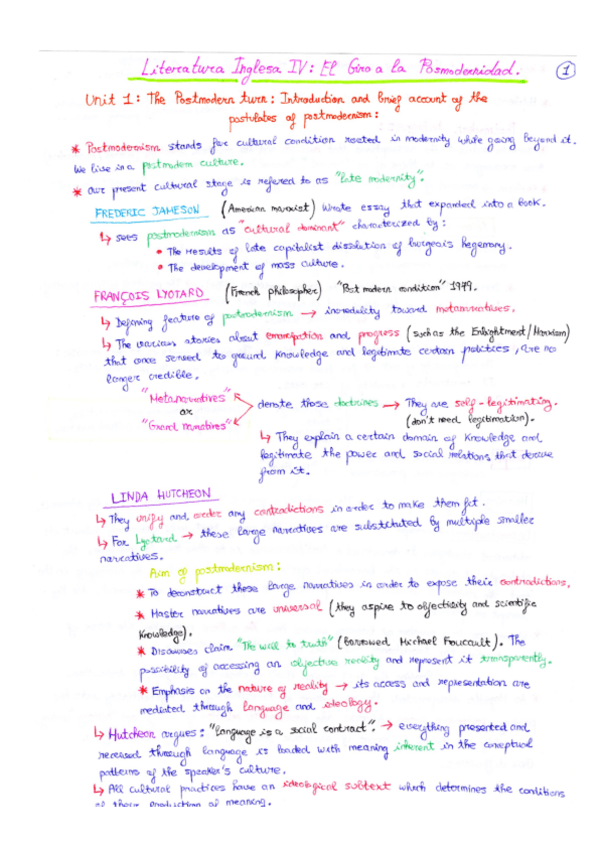 Literatura Inglesa IV: El Giro a la Posmodernidad. 1
Unit 1: The Postmodern turn: Introduction and brief account of the
postulates of postmodernism:
* Postmodernism stands for cultural condition rooted in modernity while going beyond it.
We live in a postmodern culture.
* Our present cultural stage is refered to as "late modernity".
FREDERIC JAMESON (American marxist) wrote essay that expanded into a book.
↳ sees postmodernism as "cultural dominant" characterized by:
• The results of late capitalist dissolution of burgeois hegemony.
• The development of mass culture.
FRANÇOIS LYOTARD (French philosopher) "Postmodern condition" 1979.
↳ Defining feature of postmodernism → incredulity toward metanarratives.
↳ The various stories about emancipation and progress (such as the Enlightment/Marxism)
that once served to ground knowledge and legitimate certain politics, are no
longer credible.
"Metanarratives"
or
"Grand narratives"
denote those doctrines → They are self-legitimating.
(don't need legitimation).
↳ They explain a certain domain of knowledge and
legitimate the power and social relations that derive
from it.
LINDA HUTCHEON
↳ They unify and order any contradictions in order to make them fit.
↳ For Lyotard → these large narratives are substituted by multiple smaller
narratives.
Aim of postmodernism:
* To deconstruct these large narratives in order to expose their contradictions.
* Master narratives are universal (they aspire to objectivity and scientific
knowledge).
* Discourses claim "the will to truth" (borrowed Michael Foucault). The
possibility of accessing an objective reality and represent it transparently.
* Emphasis on the nature of reality → its access and representation are
mediated through language and ideology.
↳ Hutcheon argues: "language is a social contract". → everything presented and
received through language is loaded with meaning inherent in the conceptual
patterns of the speaker's culture.
↳ All cultural practices have an ideological subtext which determines the conditions
of their production of meaning.